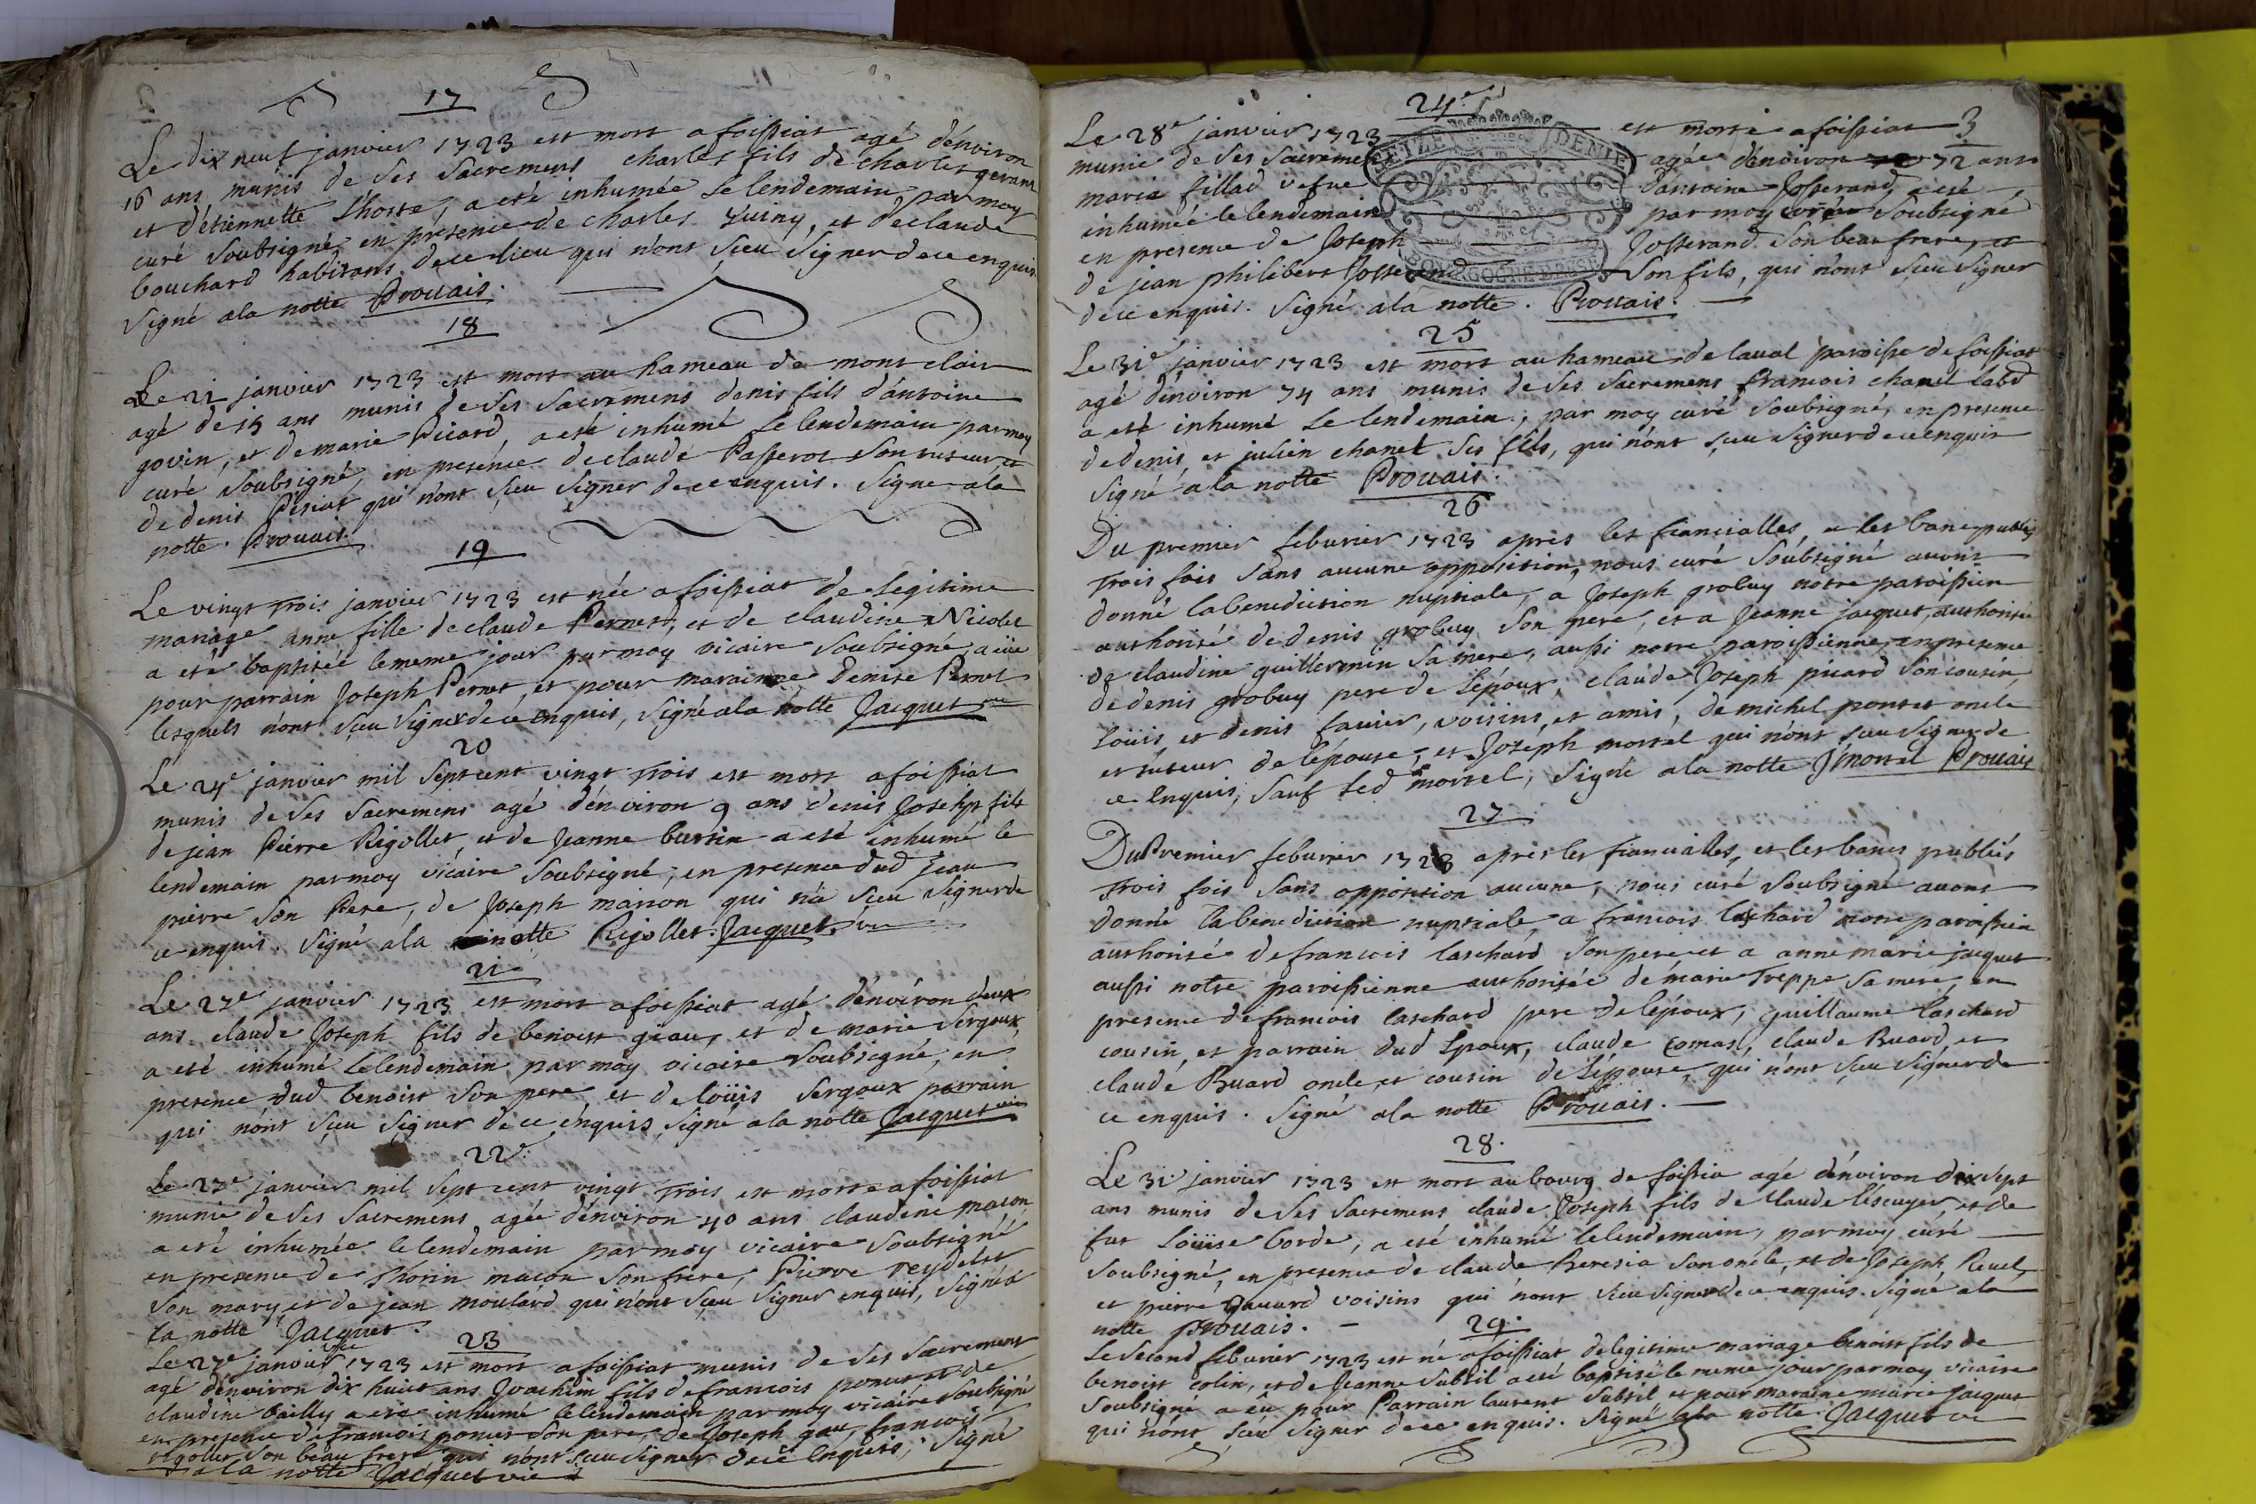 17
Le dix neuf janvier 1723 est mort a foissiat agé d'environ
16 ans munis de ses sacremens charles fils de charles gerans
et d'etiennette L'hoste, a eté inhumée le lendemain par moy
curé soubsigné en présence de charles et de claude
bouchard habitans de ce lieu qui n'ont sceu signer de ce enquis
signé a la notte Prouais.
18
Le 21 janvier 1723 est mort au hameau de mont clair
agé de 15 ans munis de ses sacremens denis fils d'antoine
govin, et de marie Picard, a eté inhumé le lendemain par moy
curé soubsigné, en presence de claude Passerot son tuteur et
de denis Periat qui n'ont sceu signer de ce enquis. Signe a la
notte. Prouais.
19
Le vingt trois janvier 1723 est née a foissiat de legitime
mariage anne fille de claude Pernet, et de claudine Nicolet
a eté baptisée le meme jour par moy vicaire soubsigné, a eüe
pour parrain Joseph Pernet, et pour maraine Denise Pernet
lesquels n'ont sceu signer de ce enquis, signé a la notte Jacquet vic
20
Le 24e janvier mil sept cent vingt trois est mort a foissiat
munis de ses sacremens agé d'environ 9 ans denis Joseph fils
de jean Pierre Rigollet, et de Jeanne bursin a eté inhumé le
lendemain par moy vicaire soubsigné, en presence dud Jean
pierre son Pere, de Joseph marion qui n'a sceu signer de
ce enquis. Signé a la notte Rigollet. Jacquet vic
21
Le 27e janvier 1723 est mort a foissiat agé d'environ deux
ans claude Joseph fils de benoist geau, et de marie Sergoux,
a eté inhumé le lendemain par moy vicaire soubsigné, en
presence dud benoist son pere et de loüis Sergoux parrain
qui n'ont sceu signer de ce enquis signé a la notte Jacquet vic
22e
Le 27e janvier mil sept cent vingt trois est morte a foissiat
munie de ses sacremens agée d'environ 40 ans claudine macon,
a eté inhumée le lendemain par moy vicaire soubsigné
en presence de Thorin macon son frere, Pierre reydelet
son mary, et de jean moulard qui n'ont sceu signer enquis, signé a
la notte Jacquet.
vic
23
Le 27e janvier 1723 est mort a foissiat munis de ses sacremens
agé d'environ dix huict ans Joachim fils de francois ponut et de
claudine bailly a eté inhumé le lendemain par moy vicaire soubsigné
en presence de francois ponut son pere, de Joseph gau, francois
rigollet son beau frere qui n'ont sceu signer de ce enquis, signé
a la notte Jacquet vic
24e
3
Le 28e janvier 1723 est morte a foissiat
munie de ses sacremens agée d'environ 72 ans
marie fillad vefue d'antoine Josserand, a eté
inhumée le lendemain par moy curé soubsigné
en presence de Joseph Josserand son beau frere, et
de jean philibert Josserand son fils, qui n'ont sceu signer
de ce enquis. Signé a la notte. Prouais.
25
Le 31e janvier 1723 est mort au hameau de laual paroisse de foissiat
agé d'environ 74 ans munis de ses sacremens francois chanel labd
a eté inhumé le lendemain, par moy curé soubsigné, en presence
de denis, et julien chanel ses fils, qui n'ont sceu signer de ce enquis
signé a la notte Prouais.
26
Du premier feburier 1723 apres les fiancialles, et les bans publiés
trois fois sans aucune opposition, nous curé soubsigné auons
donné la benediction nuptiale, a Joseph grobuy notre paroissien
authorisé de denis grobuy son pere, et a Jeanne jacquet, authorisée
de claudine guillermin sa mere, aussi notre paroissienne, en presence
de denis grobuy pere de l'epoux, claude Joseph picard son cousin
loüis, et denis fauier, voisins, et amis, de michel ponset oncle
et tuteur de l'epouse, et Joseph morrel qui n'ont sceu signer de
ce enquis, sauf led morrel, signé a la notte J morrel Prouais
27
Du Premier feburier 1723 apres les fiancialles, et les bancs publiés
trois fois sans opposition aucune, nous curé soubsigné auons
donné la benediction nuptiale a francois laschard notre paroissien
authorisé de francois laschard son pere et a anne marie jacquet
aussi notre paroissienne authorisée de marie Treppe sa mere, en
presence de francois laschard pere de l'epoux, guillaume laschard
cousin, et parrain dud Epoux, claude comas, claude Buard, et
claude Buard oncle et cousin de l'epouse, qui n'ont sceu signer de
ce enquis. Signé a la notte Prouais.
28.
Le 31 janvier 1723 est mort au bourg de foissia agé d'environ dix sept
ans munis de ses sacremens claude Joseph fils de claude l'escuyer, et de
fut Loüise borde, a eté inhumé le lendemain, par moy curé
soubsigné, en presence de claude Beresia son oncle, et de Joseph Reuel,
et pierre Jauard voisins qui n'ont sceu signer de ce enquis. signé a la
notte Prouais.
29.
Le second feburier 1723 est né a foissiat de legitime mariage benoist fils de
benoist colin, et de Jeanne Subtil a eté baptisé le meme jour par moy vicaire
soubsigné a eu pour Parrain laurent Subtil et pour maraine marie jacquet
qui n'ont sceu signer de ce enquis. signé a la notte. Jacquet vic